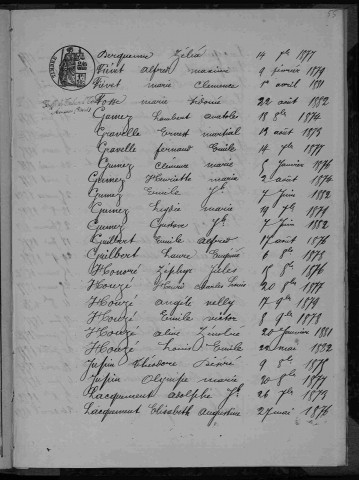 55
Berquenne Zélia 14 7bre 1877
Fivet alfred maxime 9 février 1879
Fivet marie Clémence 1er avril 1881
Fosse marie Sidonie 22 août 1882
Gamez Lambert anatole 18 8bre 1874
Gravelle Ernest martial 19 août 1875
Gravelle fernand Emile 14 7bre 1877
Gumez Clémence marie 5 Janvier 1876
Gumez Henriette marie 2 août 1874
Gumez Emile Jh 7 Juin 1882
Gumez Lydie marie 19 7bre 1879
Gumez Gustave Jh 7 Juin 1882
Guilbert Emile alfred 17 août 1876
Guilbert Laure Eugénie 6 1878
Honoré Zéphyr Jules 15 8bre 1876
Houzé Henri charles Louis 20 8bre 1877
Houzé angèle nelly 17 9bre 1879
Houzé Emile victor 8 9bre 1878
Houzé aline Zénobie 20 Janvier 1881
Houzé Louis Emile 22 mai 1882
Jupin Théodore Désiré 9 8bre 1875
Jupin Olympe marie 20 8bre 1877
Lacquement adolphe Jh 26 7bre 1879
Lacquement Elisabeth augustine 27 mai 1876